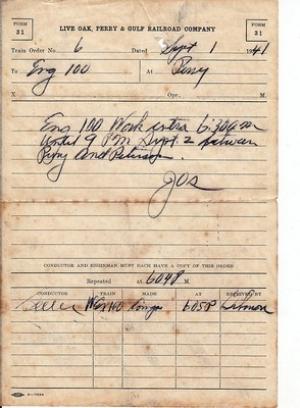 FORM 31
LIVE OAK, PERRY & GULF RAILROAD COMPANY
FORM 31
Train Order No. 6 Dated Sept 1 1941
To Eng 100 At Perry
X Opr. M.
Eng 100 Work extra 6:30 am
Until 9 PM Sept. 2 between
Perry and
JOS
CONDUCTOR AND ENGINEMAN MUST EACH HAVE A COPY OF THIS ORDER
Repeated at 604P M.
CONDUCTOR TRAIN MADE AT RECEIVED BY
605P